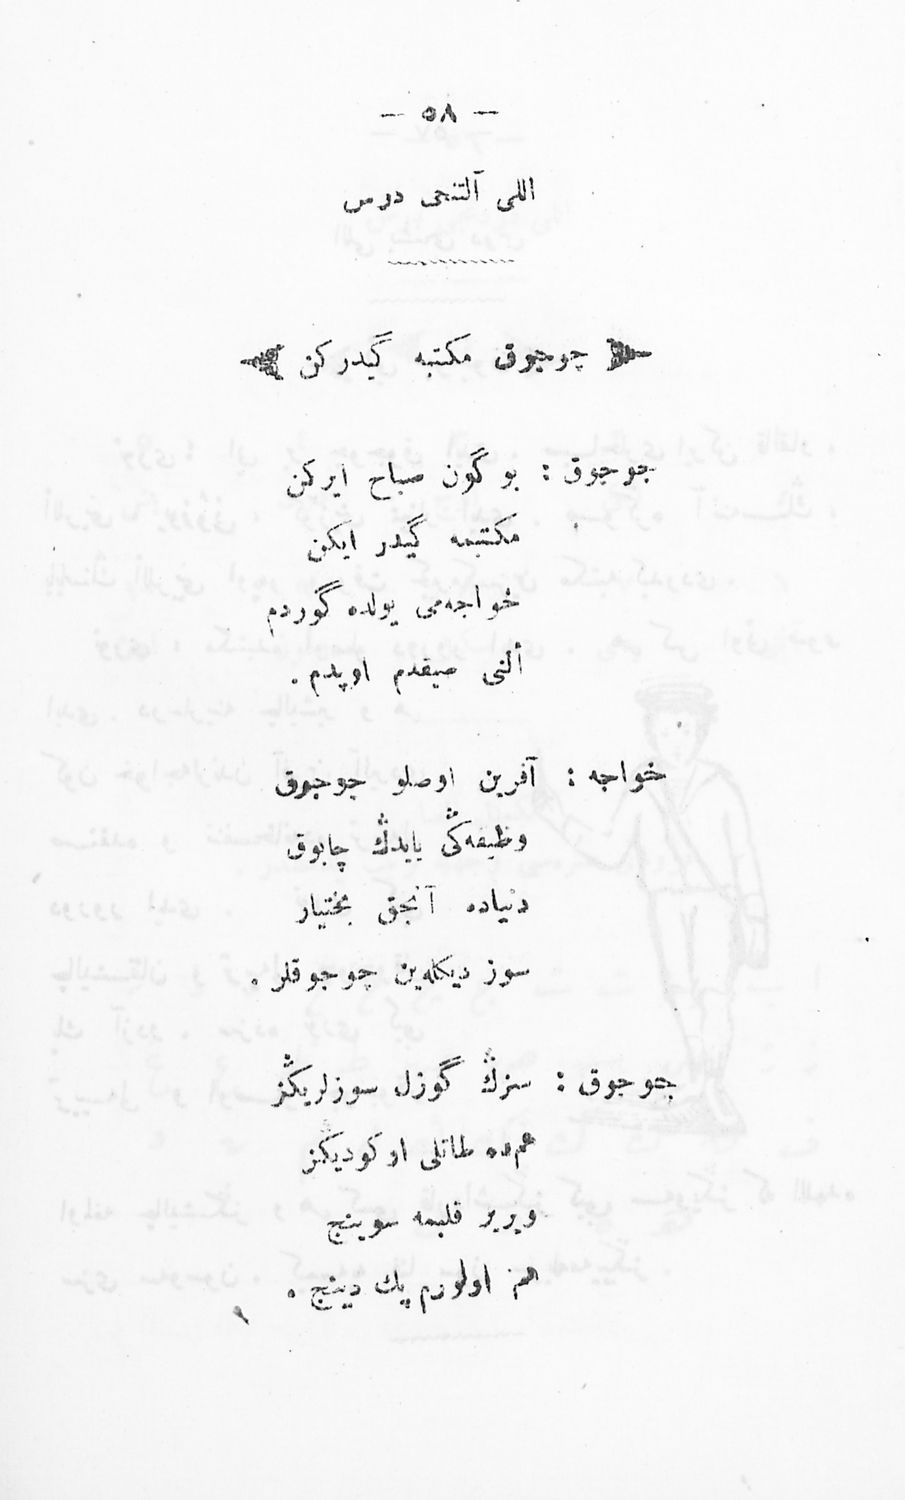 — ٥٨ —
اللی آلتنجی درس
چوجوق مکتبه گیدرکن
جوجوق : بو گون صباح ایرکن
مکتبمه گیدر ایکن
خواجه‌می یولده گوردم
ألنی صیقدم اوپدم .
خواجه : آفرین اوصلو جوجوق
وظیفه‌ڭی یاپدڭ چابوق
دنیاده آنجق بختیار
سوز دیکله‌ین چوجوقلر .
جوجوق : سزڭ گوزل سوزلریڭز
هم‌ده طاتلی اوکودیڭز
ویریر قلبمه سوینج
هم اولورم پك دینج .